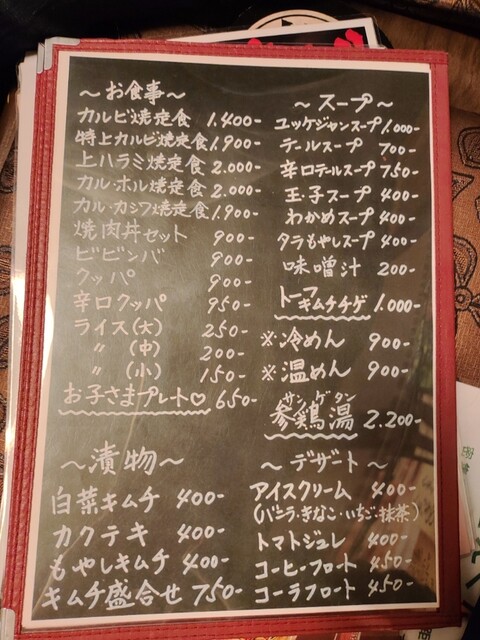 ～お食事～
カルビ焼定食 1.400-
特上カルビ焼定食 1.900-
上ハラミ焼定食 2.000-
カル・ホル焼定食 2.000-
カル・カシワ焼定食 1.900-
焼肉丼セット 900-
ビビンバ 900-
クッパ 900-
辛口クッパ 950-
ライス(大) 250-
〃 (中) 200-
〃 (小) 150-
お子さまプレート♡ 650-
～漬物～
白菜キムチ 400-
カクテキ 400-
もやしキムチ 400-
キムチ盛合せ 750-
～スープ～
ユッケジャンスープ 1.000-
テールスープ 700-
辛口テールスープ 750-
玉子スープ 400-
わかめスープ 400-
タラもやしスープ 400-
味噌汁 200-
トーフキムチチゲ 1.000-
※冷めん 900-
※温めん 900-
サンゲタン
参鶏湯 2.200-
～デザート～
アイスクリーム 400-
(バニラ・きなこ・いちご・抹茶)
トマトジュレ 400-
コーヒーフロート 450-
コーラフロート 450-